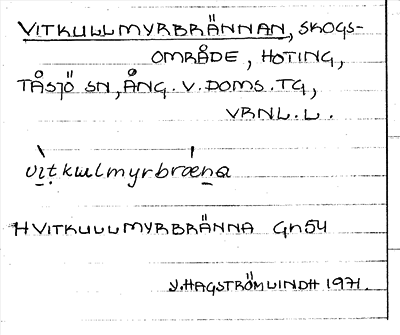 VITKULLMYRBRÄNNAN, SKOGS-
OMRÅDE, HOTING,
TÅSJÖ SN, ÅNG. V. DOMS. TG,
VRNL. L.
vitkɯlmyrbræna
HVITKULLMYRBRÄNNA Gn54
Y. HAGSTRÖMLINDH 1971.